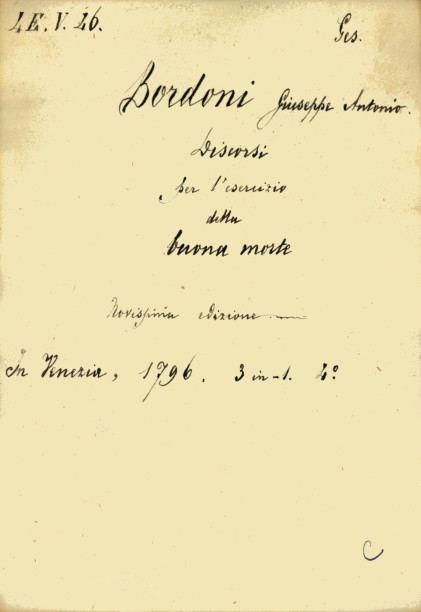 4E.V.26. Ges.
Bordoni Giuseppe Antonio.
Discorsi
per l'esercizio
della
buona morte
Novissima edizione
In Venezia, 1796. 3 in-1. 4º
C